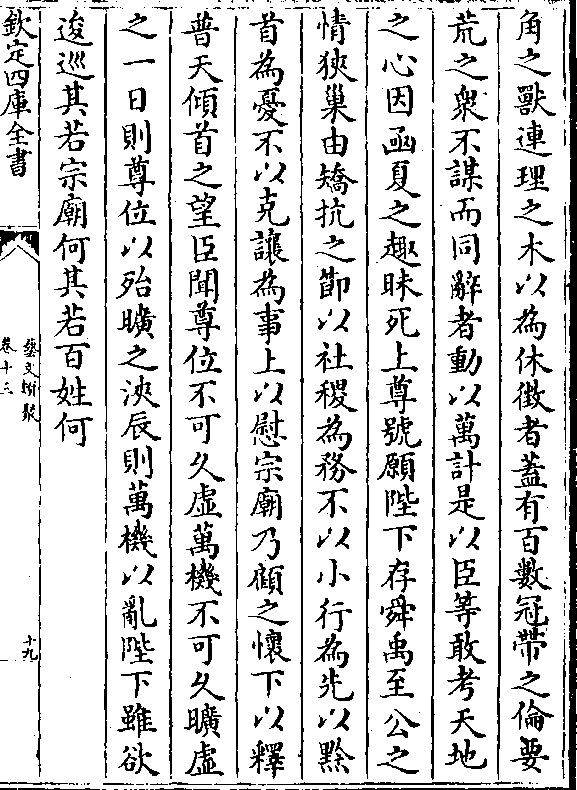 角之獸連理之木以為休徴者蓋有百數冠帶之倫要
荒之衆不謀而同辭者動以萬計是以臣等敢考天地
之心因函夏之趣昧死上尊號願陛下存舜禹至公之
情狹巢由矯抗之節以社稷為務不以小行為先以黔
首為憂不以克讓為事上以慰宗廟乃顧之懷下以釋
普天傾首之望臣聞尊位不可久虛萬機不可久曠虛
之一日則尊位以殆曠之浹辰則萬機以亂陛下雖欲
逡巡其若宗廟何其若百姓何
欽定四庫全書
藝文類聚
卷十三
十九